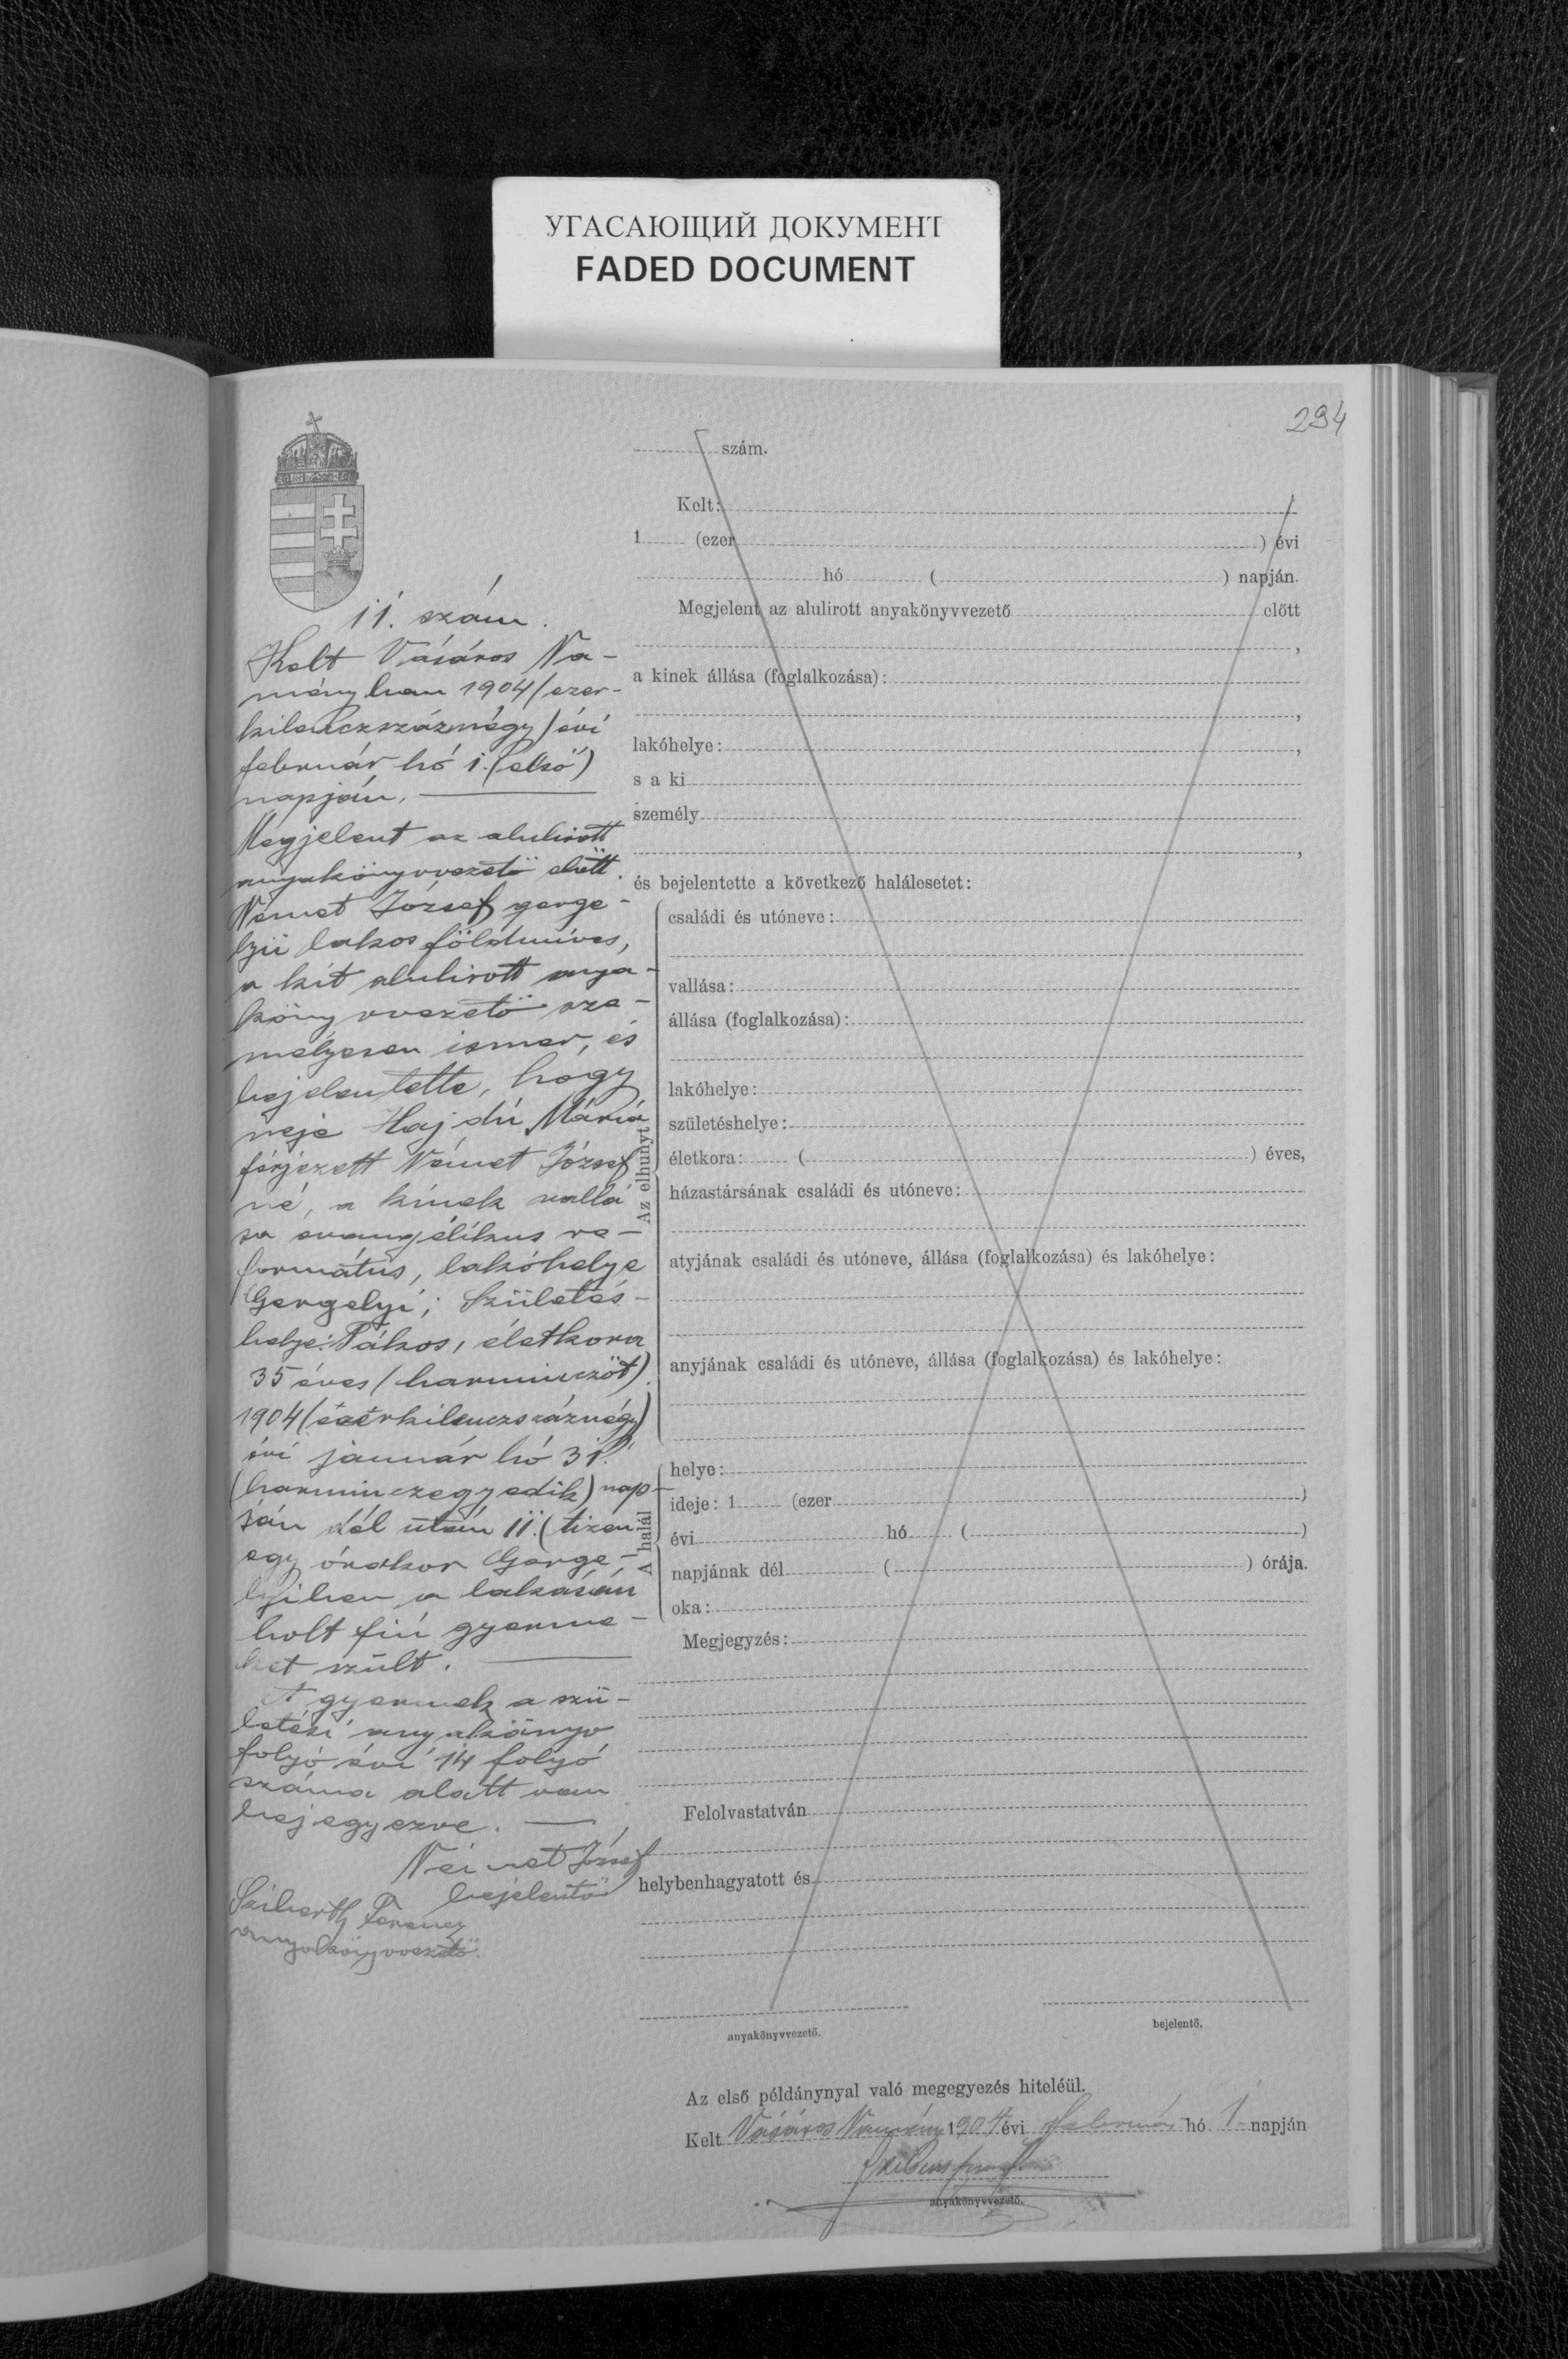 УГАСАЮЩИЙ ДОКУМЕНТ
FADED DOCUMENT
294
11. szám.
Kelt Vásáros Na-
ményban 1904 (ezer-
kilenczszáznégy) évi
február hó 1. (első)
napján.
Megjelent az alulirott
anyakönyvvezető előtt.
Német József gerge-
lyii lakos földmíves,
a kit alulirott anya-
könyvvezető sze-
mélyesen ismer, és
bejelentette, hogy
neje Hajdú Mária
férjezett Német József
né, a kinek vallá
sa evangélikus re-
formátus, lakóhelye
Gergelyi; születés-
helye: Tákos, életkora
35 éves (harminczöt).
1904 (ezerkilenczszáznégy)
évi január hó 31.
(harminczegyedik) nap-
ján dél után 11. (tizen
egy órakor Gerge-
lyiben a lakásán
holt fiú gyerme-
ket szült.
A gyermek a szü-
letési anyakönyv
folyó évi 14 folyó
száma alatt van
bejegyezve.
Német József
bejelentő
Ferencz
anyakönyvvezető.
szám.
Kelt:
1 (ezer ) évi
hó ( ) napján.
Megjelent az alulirott anyakönyvvezető előtt
,
a kinek állása (foglalkozása):
,
lakóhelye: ,
s a ki
személy
,
és bejelentette a következő halálesetet:
Az elhunyt
családi és utóneve:
vallása:
állása (foglalkozása):
lakóhelye:
születéshelye:
életkora: ( ) éves,
házastársának családi és utóneve:
atyjának családi és utóneve, állása (foglalkozása) és lakóhelye:
anyjának családi és utóneve, állása (foglalkozása) és lakóhelye:
A halál
helye:
ideje: 1 (ezer )
évi hó ( )
napjának dél ( ) órája.
oka:
Megjegyzés:
Felolvastatván
helybenhagyatott és
anyakönyvvezető.
bejelentő.
Az első példánynyal való megegyezés hiteléül.
Kelt Vásáros Namény 1904 évi február hó 1 napján
anyakönyvvezető.